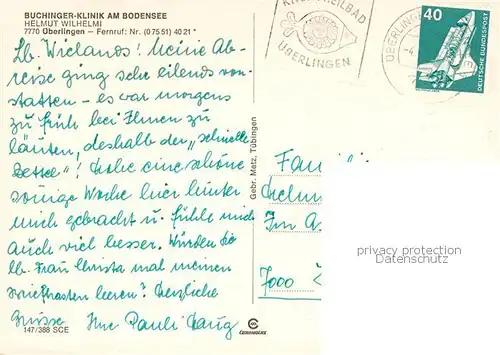 BUCHINGER-KLINIK AM BODENSEE
HELMUT WILHELMI
7770 Überlingen – Fernruf: Nr. (0 75 51) 40 21*
Lb. Wielands! Meine Ab-
reise ging sehr eilends von-
statten – es war morgens
zu früh bei Ihnen zu
läuten, deshalb der „schnelle
Zettel"! Habe eine schöne
ruhige Woche hier hinter
mich gebracht u. fühle mich
auch viel besser. Würden Sie
lb. Frau Christa mal meinen
Briefkasten leeren? Herzliche
Grüsse Ihre Pauli
147/388 SCE
Gebr. Metz, Tübingen
HEILBAD
ÜBERLINGEN
ÜBERLINGEN
40
DEUTSCHE BUNDESPOST
Fam
Im A
7000
privacy protection
Datenschutz